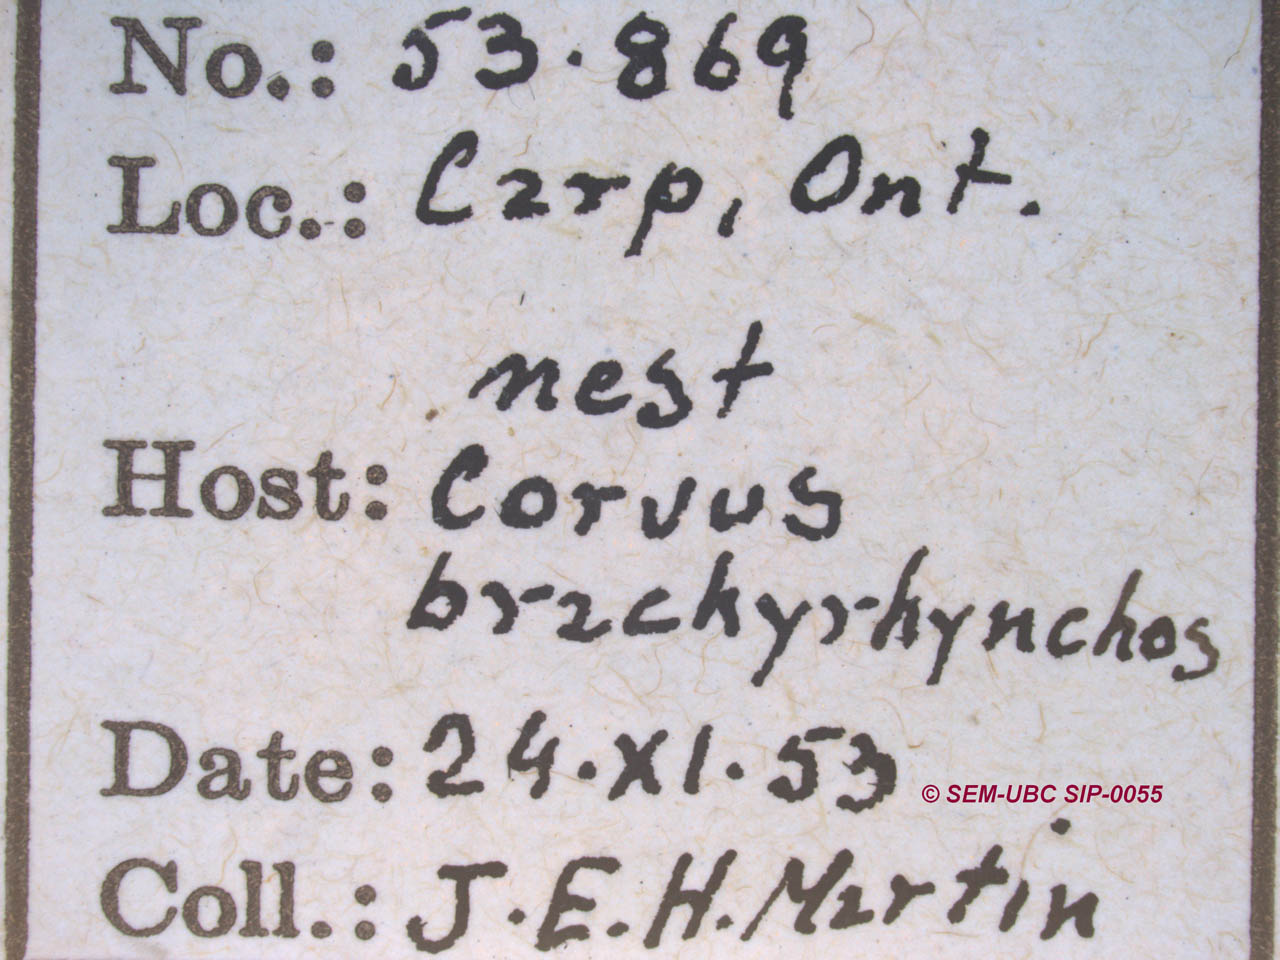 No.: 53.869
Loc.: Carp, Ont.
nest
Host: Corvus
brachyrhynchos
Date: 24.XI.53
© SEM-UBC SIP-0055
Coll.: J.E.H.Martin